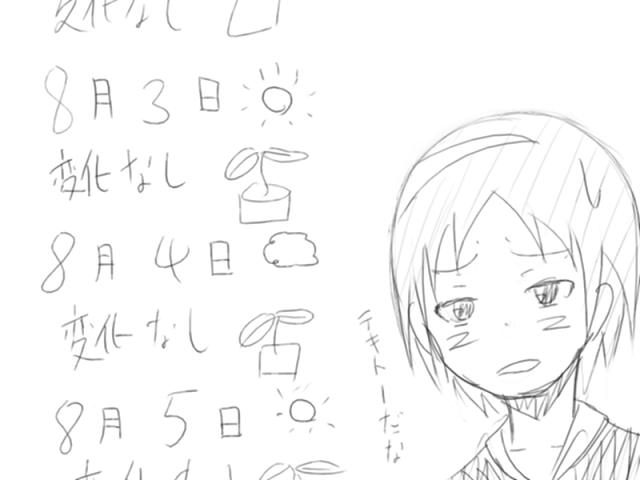 変化なし
8月3日
変化なし
8月4日
変化なし
8月5日
変化なし
テキトーだな